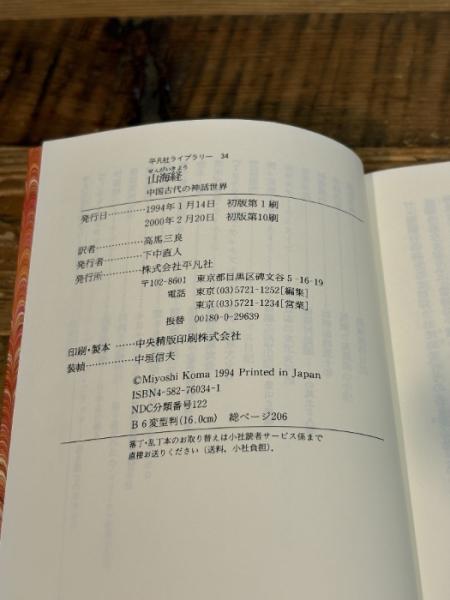 平凡社ライブラリー 34
せんがいきょう
山海経
中国古代の神話世界
発行日…………1994年1月14日 初版第1刷
2000年2月20日 初版第10刷
訳者……………高馬三良
発行者…………下中直人
発行所…………株式会社平凡社
〒102-8601 東京都目黒区碑文谷5-16-19
電話 東京(03)5721-1252[編集]
東京(03)5721-1234[営業]
振替 00180-0-29639
印刷・製本 ……中央精版印刷株式会社
装幀……………中垣信夫
©Miyoshi Koma 1994 Printed in Japan
ISBN4-582-76034-1
NDC分類番号122
B6変型判(16.0cm) 総ページ206
落丁・乱丁本のお取り替えは小社読者サービス係まで
直接お送りください(送料、小社負担)。